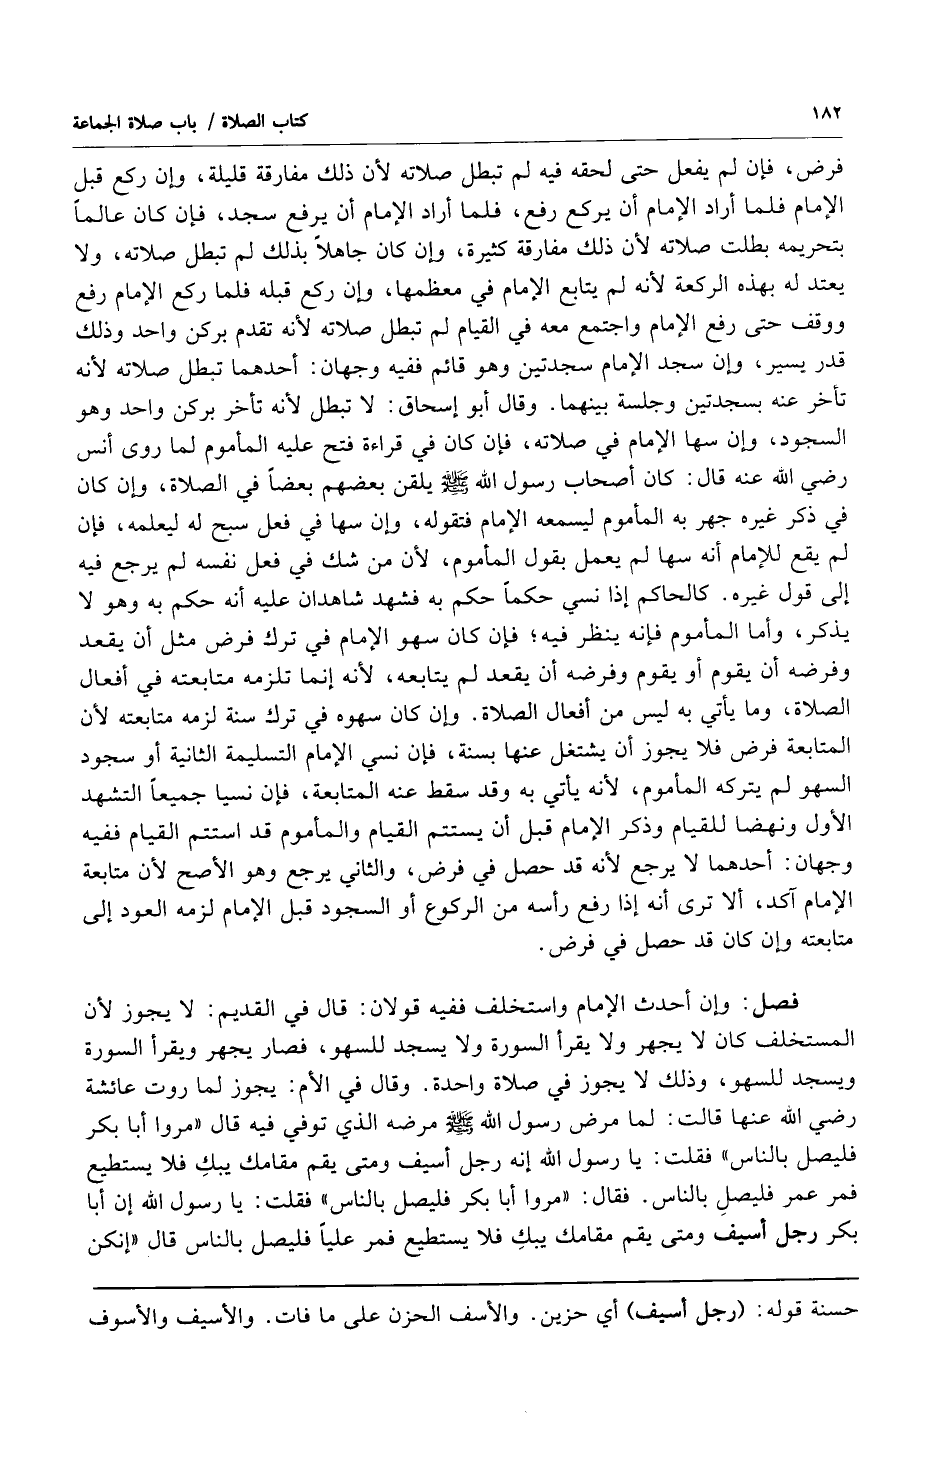 ١٨٢
كتاب الصلاة / باب صلاة الجماعة
فرض، فإن لم يفعل حتى لحقه فيه لم تبطل صلاته لأن ذلك مفارقة قليلة، وإن ركع قبل
الإمام فلما أراد الإمام أن يركع رفع، فلما أراد الإمام أن يرفع سجد، فإن كان عالماً
بتحريمه بطلت صلاته لأن ذلك مفارقة كثيرة، وإن كان جاهلاً بذلك لم تبطل صلاته، ولا
يعتد له بهذه الركعة لأنه لم يتابع الإمام في معظمها، وإن ركع قبله فلما ركع الإمام رفع
ووقف حتى رفع الإمام واجتمع معه في القيام لم تبطل صلاته لأنه تقدم بركن واحد وذلك
قدر يسير، وإن سجد الإمام سجدتين وهو قائم ففيه وجهان: أحدهما تبطل صلاته لأنه
تأخر عنه بسجدتين وجلسة بينهما. وقال أبو إسحاق: لا تبطل لأنه تأخر بركن واحد وهو
السجود، وإن سها الإمام في صلاته، فإن كان في قراءة فتح عليه المأموم لما روى أنس
رضي الله عنه قال: كان أصحاب رسول الله ﷺ يلقن بعضهم بعضاً في الصلاة، وإن كان
في ذكر غيره جهر به المأموم ليسمعه الإمام فتقوله، وإن سها في فعل سبح له ليعلمه، فإن
لم يقع للإمام أنه سها لم يعمل بقول المأموم، لأن من شك في فعل نفسه لم يرجع فيه
إلى قول غيره. كالحاكم إذا نسي حكماً حكم به فشهد شاهدان عليه أنه حكم به وهو لا
يذكر، وأما المأموم فإنه ينظر فيه؛ فإن كان سهو الإمام في ترك فرض مثل أن يقعد
وفرضه أن يقوم أو يقوم وفرضه أن يقعد لم يتابعه، لأنه إنما تلزمه متابعته في أفعال
الصلاة، وما يأتي به ليس من أفعال الصلاة. وإن كان سهوه في ترك سنة لزمه متابعته لأن
المتابعة فرض فلا يجوز أن يشتغل عنها بسنة، فإن نسي الإمام التسليمة الثانية أو سجود
السهو لم يتركه المأموم، لأنه يأتي به وقد سقط عنه المتابعة، فإن نسيا جميعاً التشهد
الأول ونهضا للقيام وذكر الإمام قبل أن يستتم القيام والمأموم قد استتم القيام ففيه
وجهان: أحدهما لا يرجع لأنه قد حصل في فرض، والثاني يرجع وهو الأصح لأن متابعة
الإمام آكد، ألا ترى أنه إذا رفع رأسه من الركوع أو السجود قبل الإمام لزمه العود إلى
متابعته وإن كان قد حصل في فرض.
فصل: وإن أحدث الإمام واستخلف ففيه قولان: قال في القديم: لا يجوز لأن
المستخلف كان لا يجهر ولا يقرأ السورة ولا يسجد للسهو، فصار يجهر ويقرأ السورة
ويسجد للسهو، وذلك لا يجوز في صلاة واحدة. وقال في الأم: يجوز لما روت عائشة
رضي الله عنها قالت: لما مرض رسول الله ﷺ مرضه الذي توفي فيه قال «مروا أبا بكر
فليصل بالناس» فقلت: يا رسول الله إنه رجل أسيف ومتى يقم مقامك يبكِ فلا يستطيع
فمر عمر فليصلِ بالناس. فقال: «مروا أبا بكر فليصل بالناس» فقلت: يا رسول الله إن أبا
بكر رجل أسيف ومتى يقم مقامك يبكِ فلا يستطيع فمر علياً فليصل بالناس قال «إنكن
حسنة قوله: (رجل أسيف) أي حزين. والأسف الحزن على ما فات. والأسيف والأسوف